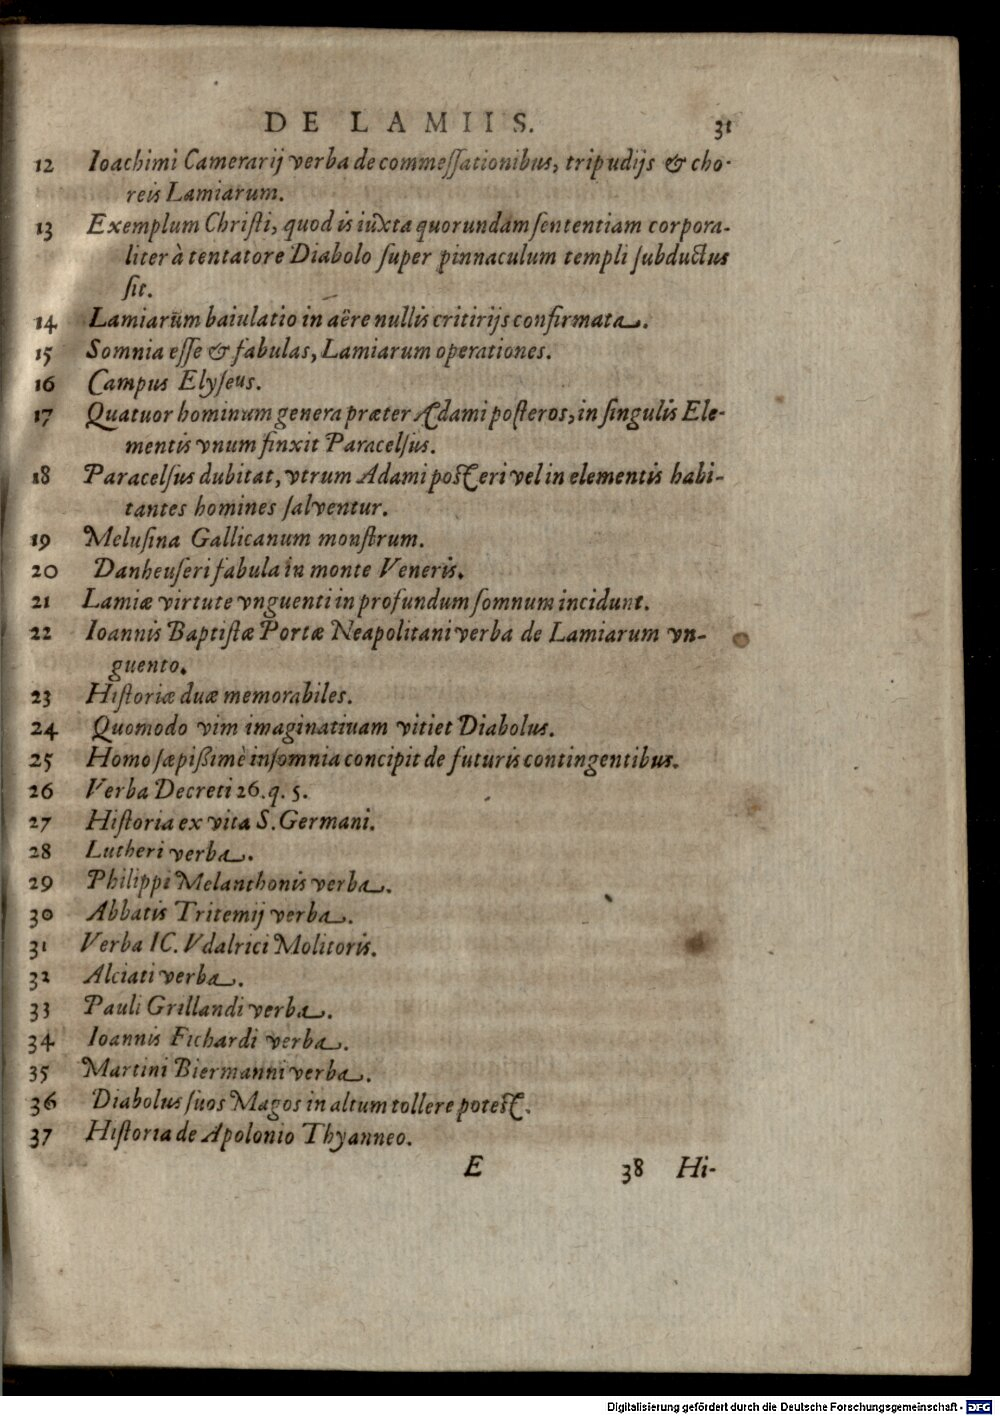 DE LAMIIS. 31
12 Ioachimi Camerarij verba de commeſſationibus, tripudijs & cho-
reis Lamiarum.
13 Exemplum Chriſti, quod is iuxta quorundam ſententiam corpora-
liter à tentatore Diabolo ſuper pinnaculum templi ſubductus
ſit.
14 Lamiarum baiulatio in aëre nullis critirijs confirmata.
15 Somnia eſſe & fabulas, Lamiarum operationes.
16 Campus Elyſeus.
17 Quatuor hominum genera præter Adami poſteros, in ſingulis Ele-
mentis vnum finxit Paracelſus.
18 Paracelſus dubitat, vtrum Adami poſteri vel in elementis habi-
tantes homines ſalventur.
19 Meluſina Gallicanum monſtrum.
20 Danheuſeri fabula in monte Veneris.
21 Lamiæ virtute vnguenti in profundum ſomnum incidunt.
22 Ioannis Baptiſtæ Portæ Neapolitani verba de Lamiarum vn-
guento.
23 Hiſtoriæ duæ memorabiles.
24 Quomodo vim imaginatiuam vitiet Diabolus.
25 Homo ſæpißimè inſomnia concipit de futuris contingentibus.
26 Verba Decreti 26. q. 5.
27 Hiſtoria ex vita S. Germani.
28 Lutheri verba.
29 Philippi Melanthonis verba.
30 Abbatis Tritemij verba.
31 Verba IC. Vdalrici Molitoris.
32 Alciati verba.
33 Pauli Grillandi verba.
34 Ioannis Fichardi verba.
35 Martini Biermanni verba.
36 Diabolus ſuos Magos in altum tollere poteſt.
37 Hiſtoria de Apolonio Thyanneo.
E 38 Hi-
Digitalisierung gefördert durch die Deutsche Forschungsgemeinschaft - DFG